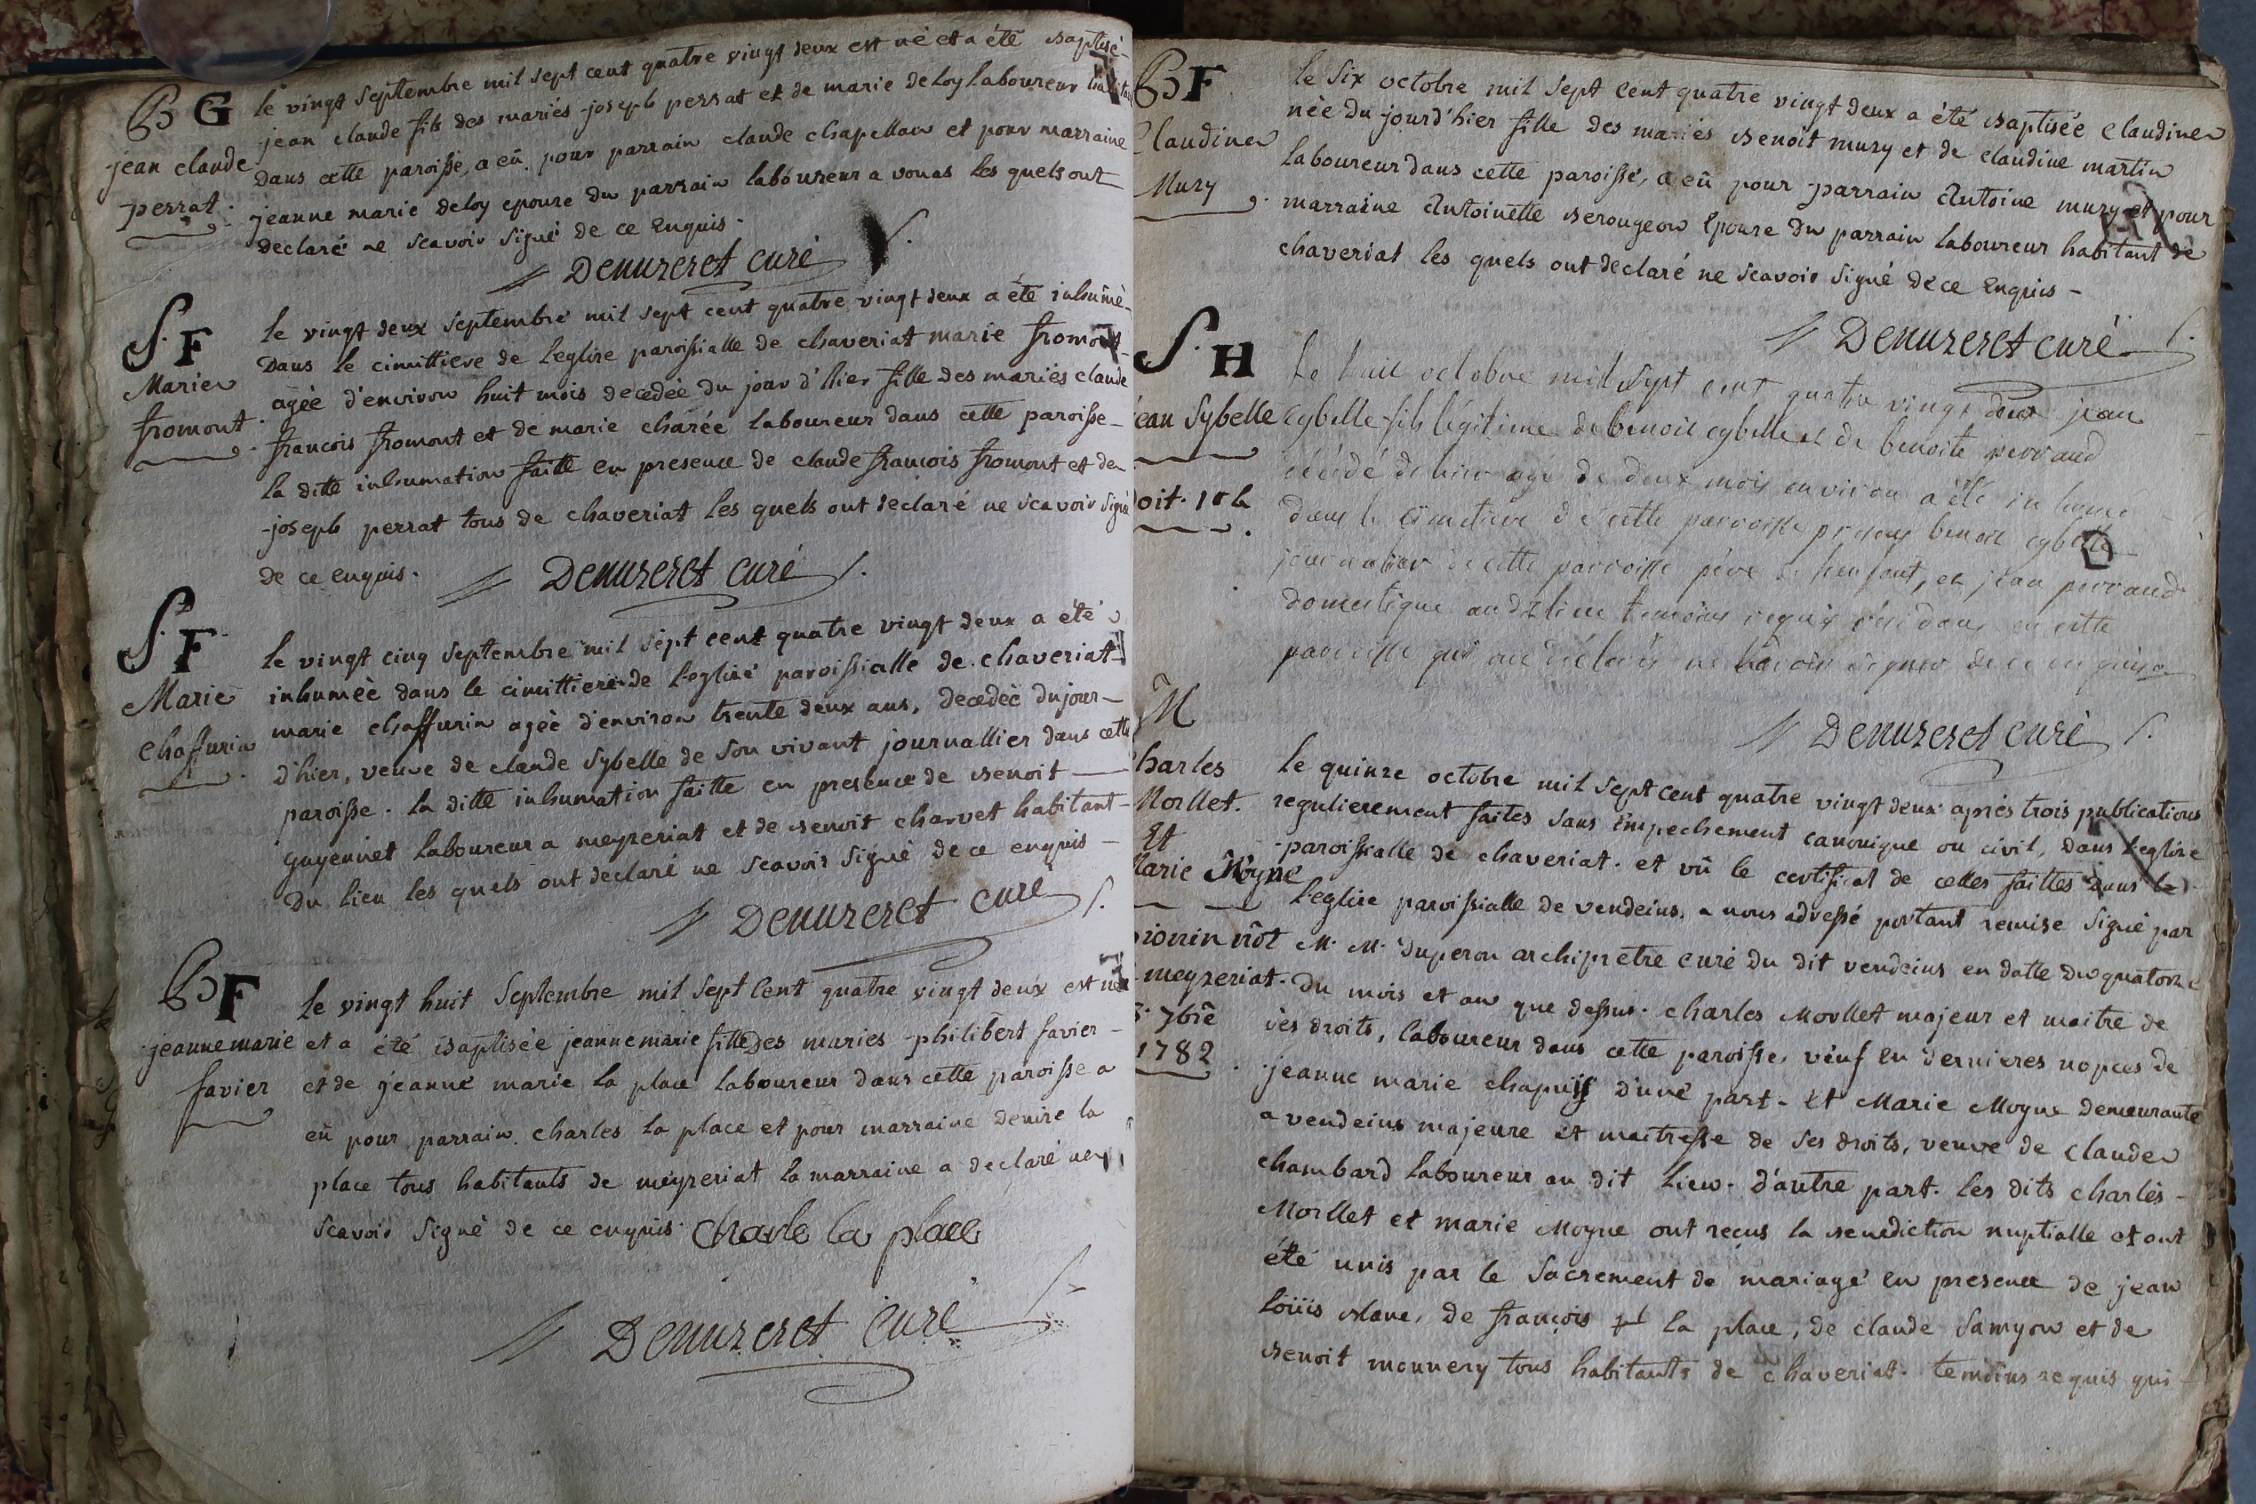 B G
jean claude
perrat.
le vingt Septembre mil sept cent quatre vingt deux est né et a été baptisé
jean claude fils des mariés joseph perrat et de marie deloy laboureur
dans cette paroisse, a eû pour parrain claude chapellan et pour marraine
jeanne marie deloy epouse du parrain laboureur a vonas les quels ont
declaré ne scavoir signé de ce Enquis.
Denuzeret curé
S. F
Marie
fromont.
le vingt deux Septembre mil sept cent quatre vingt deux a été inhumé
Dans le cimittiere de l'eglise paroissialle de chaveriat marie fromont
agée d'environ huit mois decedée du jour d'hier fille des mariés claude
francois fromont et de marie charée laboureur dans cette paroisse
la ditte inhumation faitte en presence de claude francois fromont et de
joseph perrat tous de chaveriat les quels ont declaré ne scavoir signé
de ce enquis.
Denuzeret curé
S. F
Marie
chaffurin
le vingt cinq Septembre mil sept cent quatre vingt deux a été
inhumée dans le cimittiere de l'eglise paroissialle de chaveriat
marie chaffurin agée d'environ trente deux ans, decedée du jour
d'hier, veuve de claude Sybelle de son vivant journallier dans cette
paroisse. la ditte inhumation faitte en presence de benoit
guyennet laboureur a meyzeriat et de benoit charvet habitant
du lieu les quels ont declaré ne scavoir signé de ce enquis
Denuzeret curé
B F
jeanne marie
favier
le vingt huit Septembre mil sept cent quatre vingt deux est née
et a été baptisée jeanne marie fille des mariés philibert favier
et de jeanne marie la place laboureur dans cette paroisse a
eû pour parrain charles la place et pour marraine denise la
place tous habitants de meyzeriat la marraine a declaré ne
scavoir signé de ce enquis. Charle la place
Denuzeret curé
B F
Claudine
Mury
le Six octobre mil sept cent quatre vingt deux a été baptisée claudine
née du jourd'hier fille des mariés benoit mury et de claudine martin
laboureur dans cette paroisse, a eû pour parrain Antoine mury et pour
marraine Antoinette berougeon Epouse du parrain laboureur habitant de
chaveriat les quels ont declaré ne scavoir signé de ce Enquis
Denuzeret curé
S. H
jean Sybelle
Doit. 10 s
Le huit octobre mil Sept cent quatre vingt deux jean
Cybelle fils légitime de benoit cybelle et de benoite perraud
décédé de hier agé de deux mois environ a été inhumé
dans le cimetière de cette parroisse présens benoit cybelle
journalier de cette parroisse père de l'enfant, et jean perraud
domestique audt lieu temoins requis résidans en cette
parroisse qui ont déclarés ne sçavoir signer de ce enquis
Denuzeret curé
M
Charles
Morllet.
Et
Marie Moyne
meyzeriat.
7bre
1782
le quinze octobre mil sept cent quatre vingt deux après trois publications
regulierement faites sans Empechement canonique ou civil, dans l'eglise
paroissialle de chaveriat. et vû le certificat de celles faittes dans
l'eglise paroissialle de vendeins, a nous adressé portant remise signé par
M. M. Duperon archipretre curé du dit vendeins en datte du quatorze
du mois et an que dessus. charles Morllet majeur et maitre de
ses droits, laboureur dans cette paroisse, veuf en dernieres nopces de
jeanne marie chapuis d'une part. Et Marie Moyne demeurante
a vendeins majeure et maitresse de ses droits, veuve de claude
chambard laboureur au dit lieu. d'autre part. les dits charles
Morllet et marie Moyne ont reçus la benediction nuptialle et ont
été unis par le Sacrement de mariage en presence de jean
loüis blanc, de françois la place, de claude Samyon et de
benoit monnery tous habitants de chaveriat. temoins requis qui